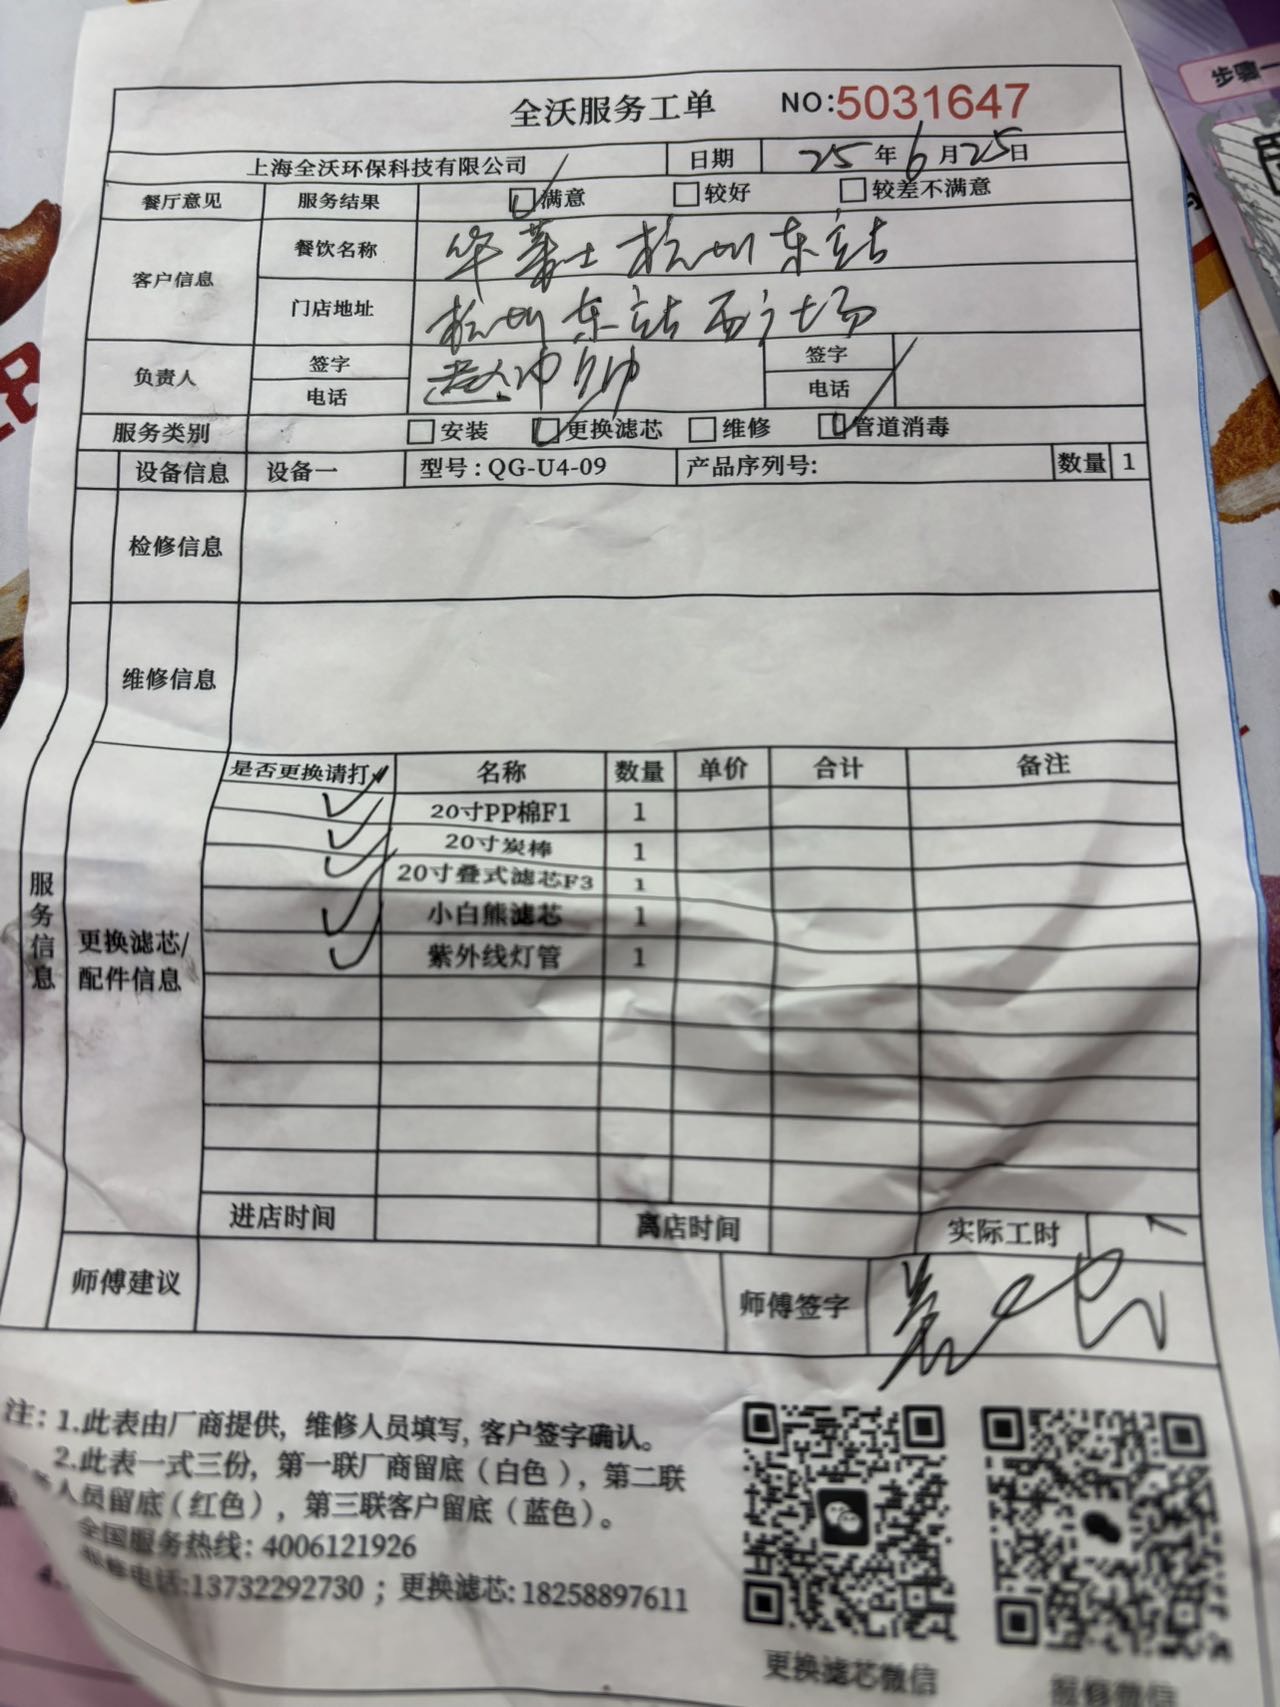 步骤一
全沃服务工单 NO:5031647
上海全沃环保科技有限公司 日期 25年6月25日
餐厅意见 服务结果 满意 较好 较差不满意
客户信息 餐饮名称 华莱士杭州东站
门店地址 杭州东站西广场
负责人 签字 赵帅帅 签字
电话 电话
服务类别 安装 更换滤芯 维修 管道消毒
设备信息 设备一 型号:QG-U4-09 产品序列号: 数量 1
检修信息
维修信息
服务信息
更换滤芯/配件信息
是否更换请打✓ 名称 数量 单价 合计 备注
✓ 20寸PP棉F1 1
✓ 20寸炭棒 1
✓ 20寸叠式滤芯F3 1
✓ 小白熊滤芯 1
✓ 紫外线灯管 1
进店时间 离店时间 实际工时
师傅建议 师傅签字
注: 1.此表由厂商提供, 维修人员填写, 客户签字确认。
2.此表一式三份, 第一联厂商留底(白色), 第二联
人员留底(红色), 第三联客户留底(蓝色)。
全国服务热线: 4006121926
电话:13732292730 ; 更换滤芯: 18258897611
更换滤芯微信
报修微信